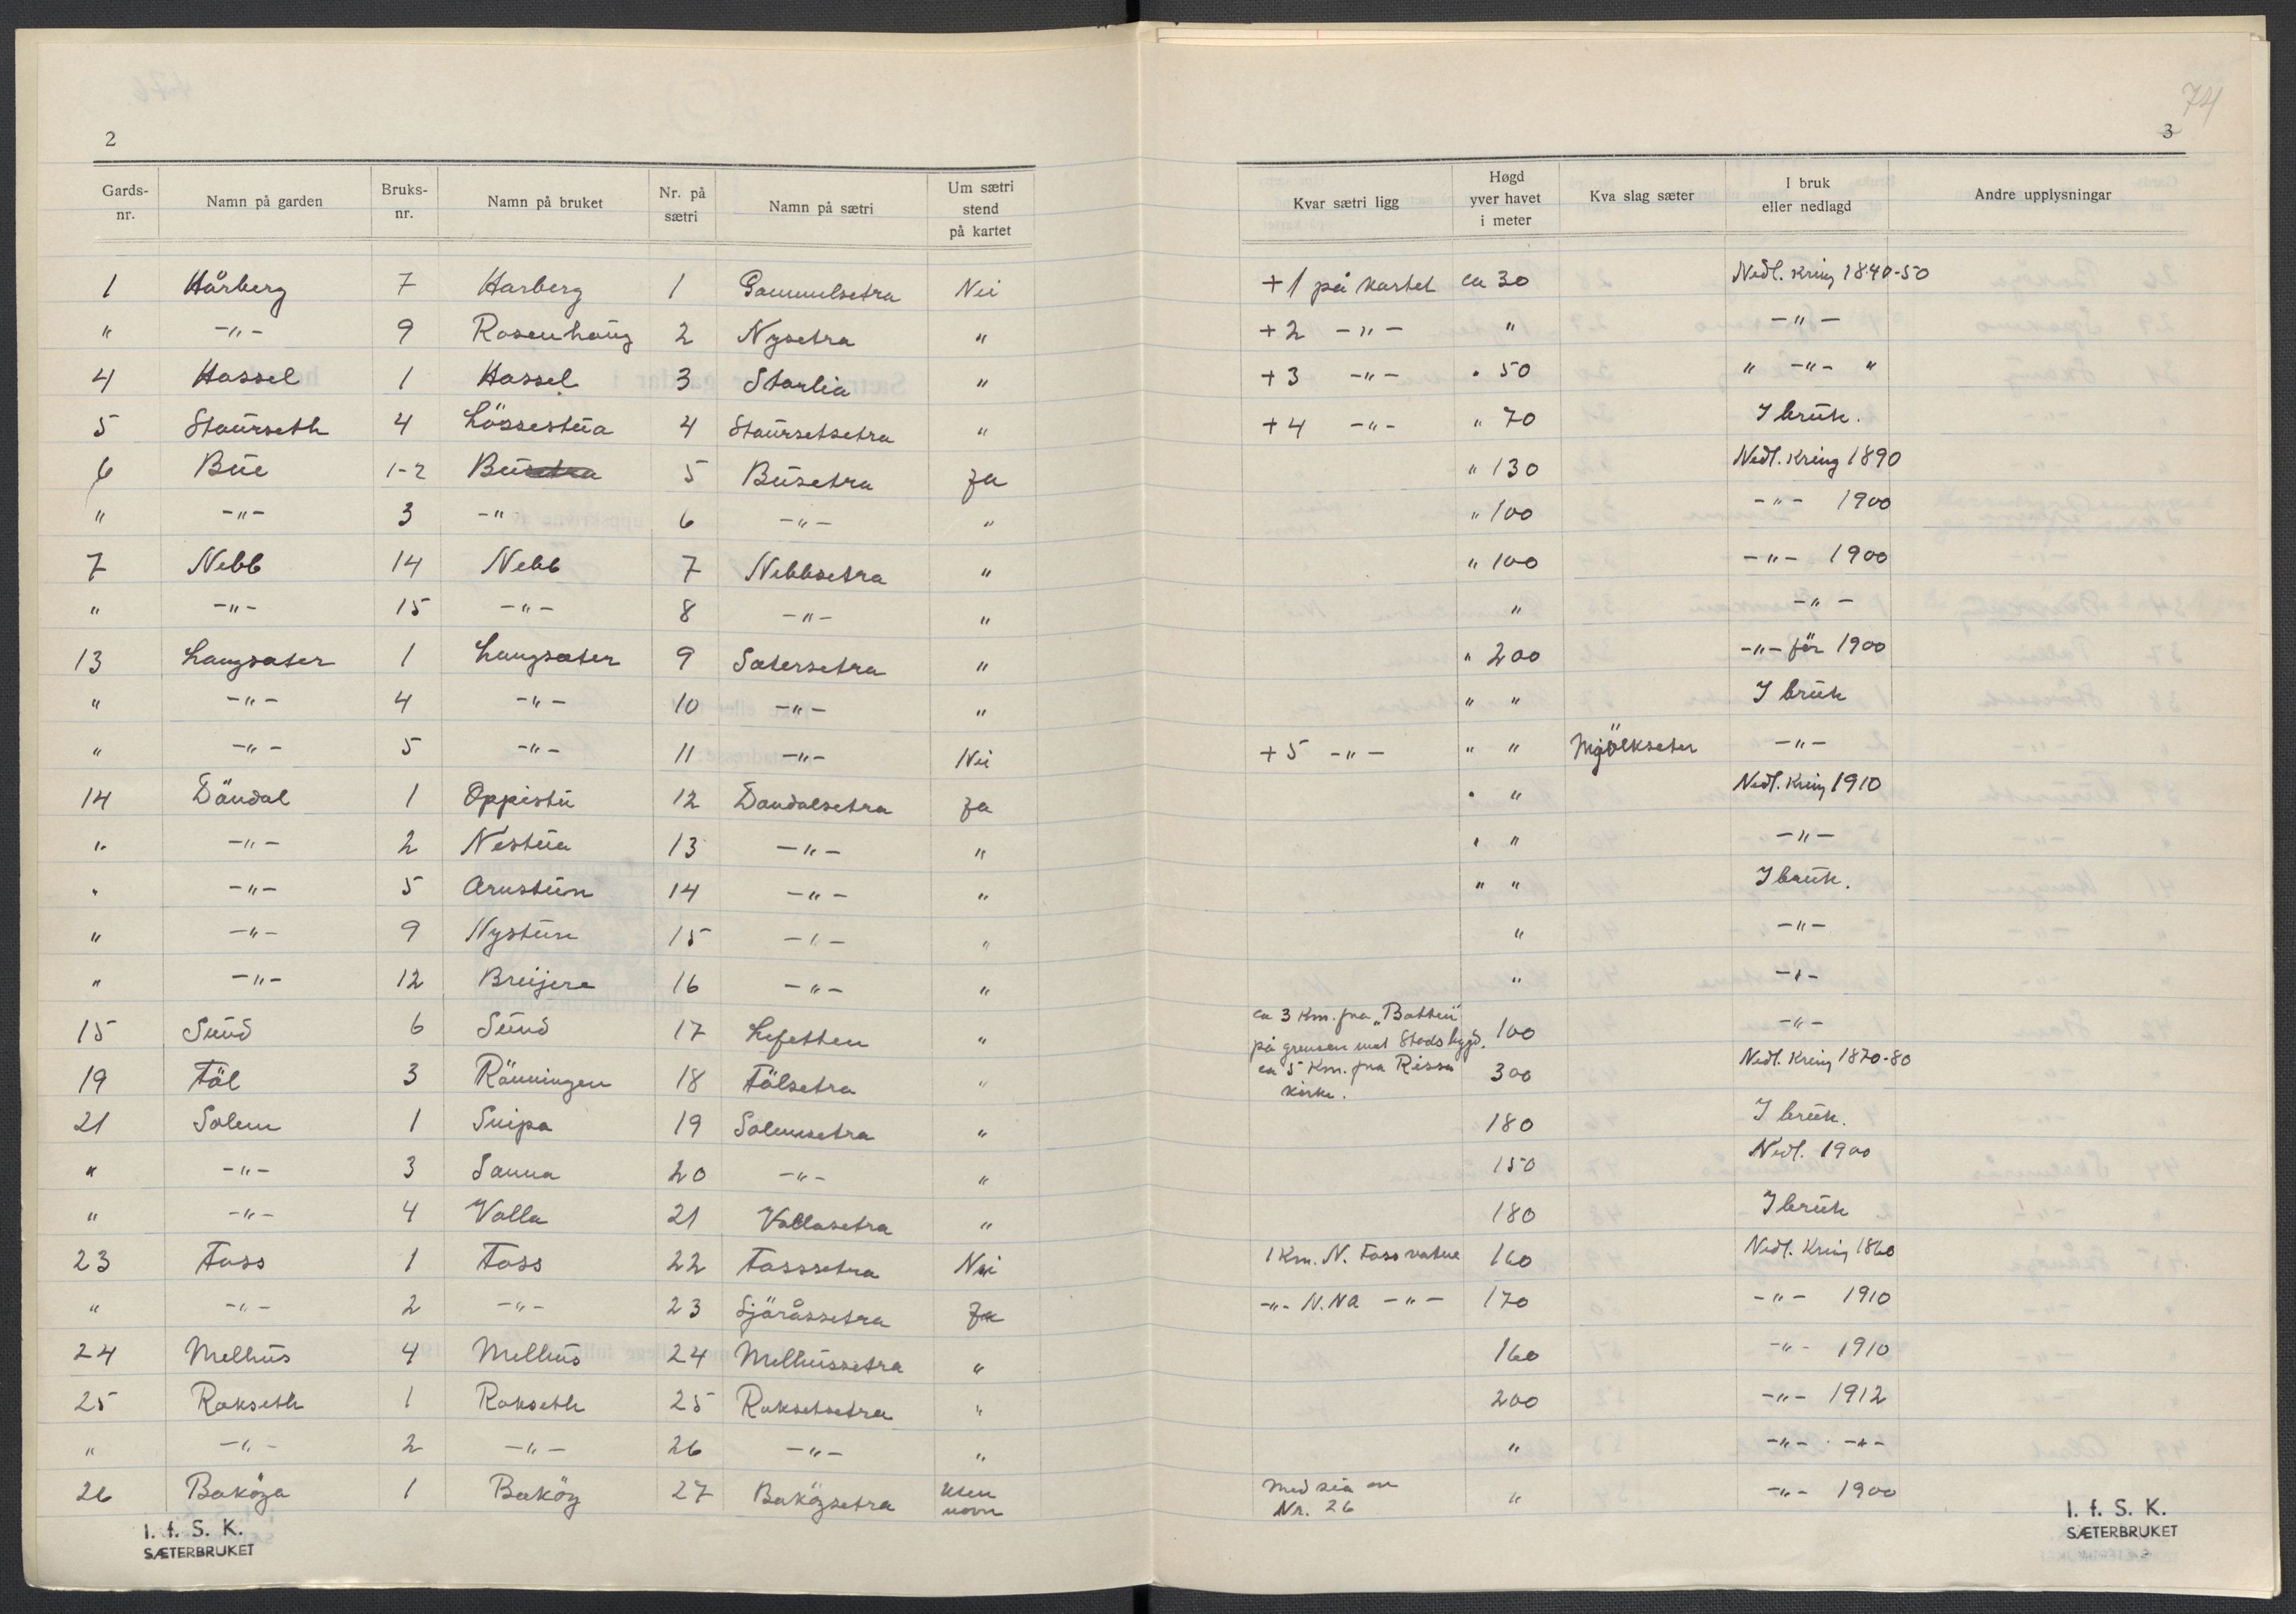 2
Gards-nr. Namn på garden Bruks-nr. Namn på bruket Nr. på sætri Namn på sætri Um sætri stend på kartet
1 Hårberg 7 Harberg 1 Gammelsetra Nei
" -"- 9 Rosenhaug 2 Nysetra "
4 Hassel 1 Hassel 3 Storlia "
5 Staurseth 4 Lössestua 4 Staursetsetra "
6 Bue 1-2 Bu 5 Busetra Ja
" -"- 3 -" 6 -"- "
7 Nebb 14 Nebb 7 Nebbsetra "
" -"- 15 -"- 8 -"- "
13 Langsæter 1 Langsæter 9 Sætersetra "
" -"- 4 -"- 10 -"- "
" -"- 5 -"- 11 -"- Nei
14 Döudal 1 Oppistu 12 Daudalsetra Ja
" -"- 2 Nestua 13 -"- "
" -"- 5 Arnstun 14 -"- "
" -"- 9 Nystun 15 -"- "
" -"- 12 16 -"- "
15 Sund 6 Sund 17 Lefetten "
19 Föl 3 Rönningen 18 Fölsetra "
21 Solem 1 Snipa 19 Solemsetra "
" -"- 3 Sanna 20 -"- "
" -"- 4 Valla 21 Vallasetra "
23 Foss 1 Foss 22 Fosssetra Nei
" -"- 2 -"- 23 Sjöråssetra Ja
24 Melhus 4 Melhus 24 Melhussetra "
25 Rokseth 1 Rokseth 25 Roksetsetra "
" -"- 2 -"- 26 -"- "
26 Baköya 1 Baköy 27 Baköysetra uten navn
I. f. S. K.
SÆTERBRUKET
74
3
Kvar sætri ligg Høgd yver havet i meter Kva slag sæter I bruk eller nedlagd Andre upplysningar
+1 på kartet ca 30 Nedl. kring 1840-50
+2 -"- " -"-
+3 -"- " 50 " -"- "
+4 -"- " 70 I bruk.
" 130 Nedl. kring 1890
" 100 -"- 1900
" 100 -"- 1900
" -"-
" 200 -"- för 1900
" " I bruk
+5 -"- " " Mjölkseter -"-
" " Nedl. kring 1910
" " -"-
" " I bruk.
" -"-
" -"-
ca 3 Km. fra "Botten"
på grensen mot Stadsbygd. 100 -"-
ca 5 Km. fra Rissa
kirke. 300 Nedl. kring 1870-80
180 I bruk.
150 Nedl. 1900
180 I bruk
1 Km. N. Fossvatne 160 Nedl. kring 1860
-"- N.NA -"- 170 -"- 1910
160 -"- 1910
200 -"- 1912
" -"- -"-
Med sia av
Nr. 26 " -"- 1900
I. f. S. K.
SÆTERBRUKET